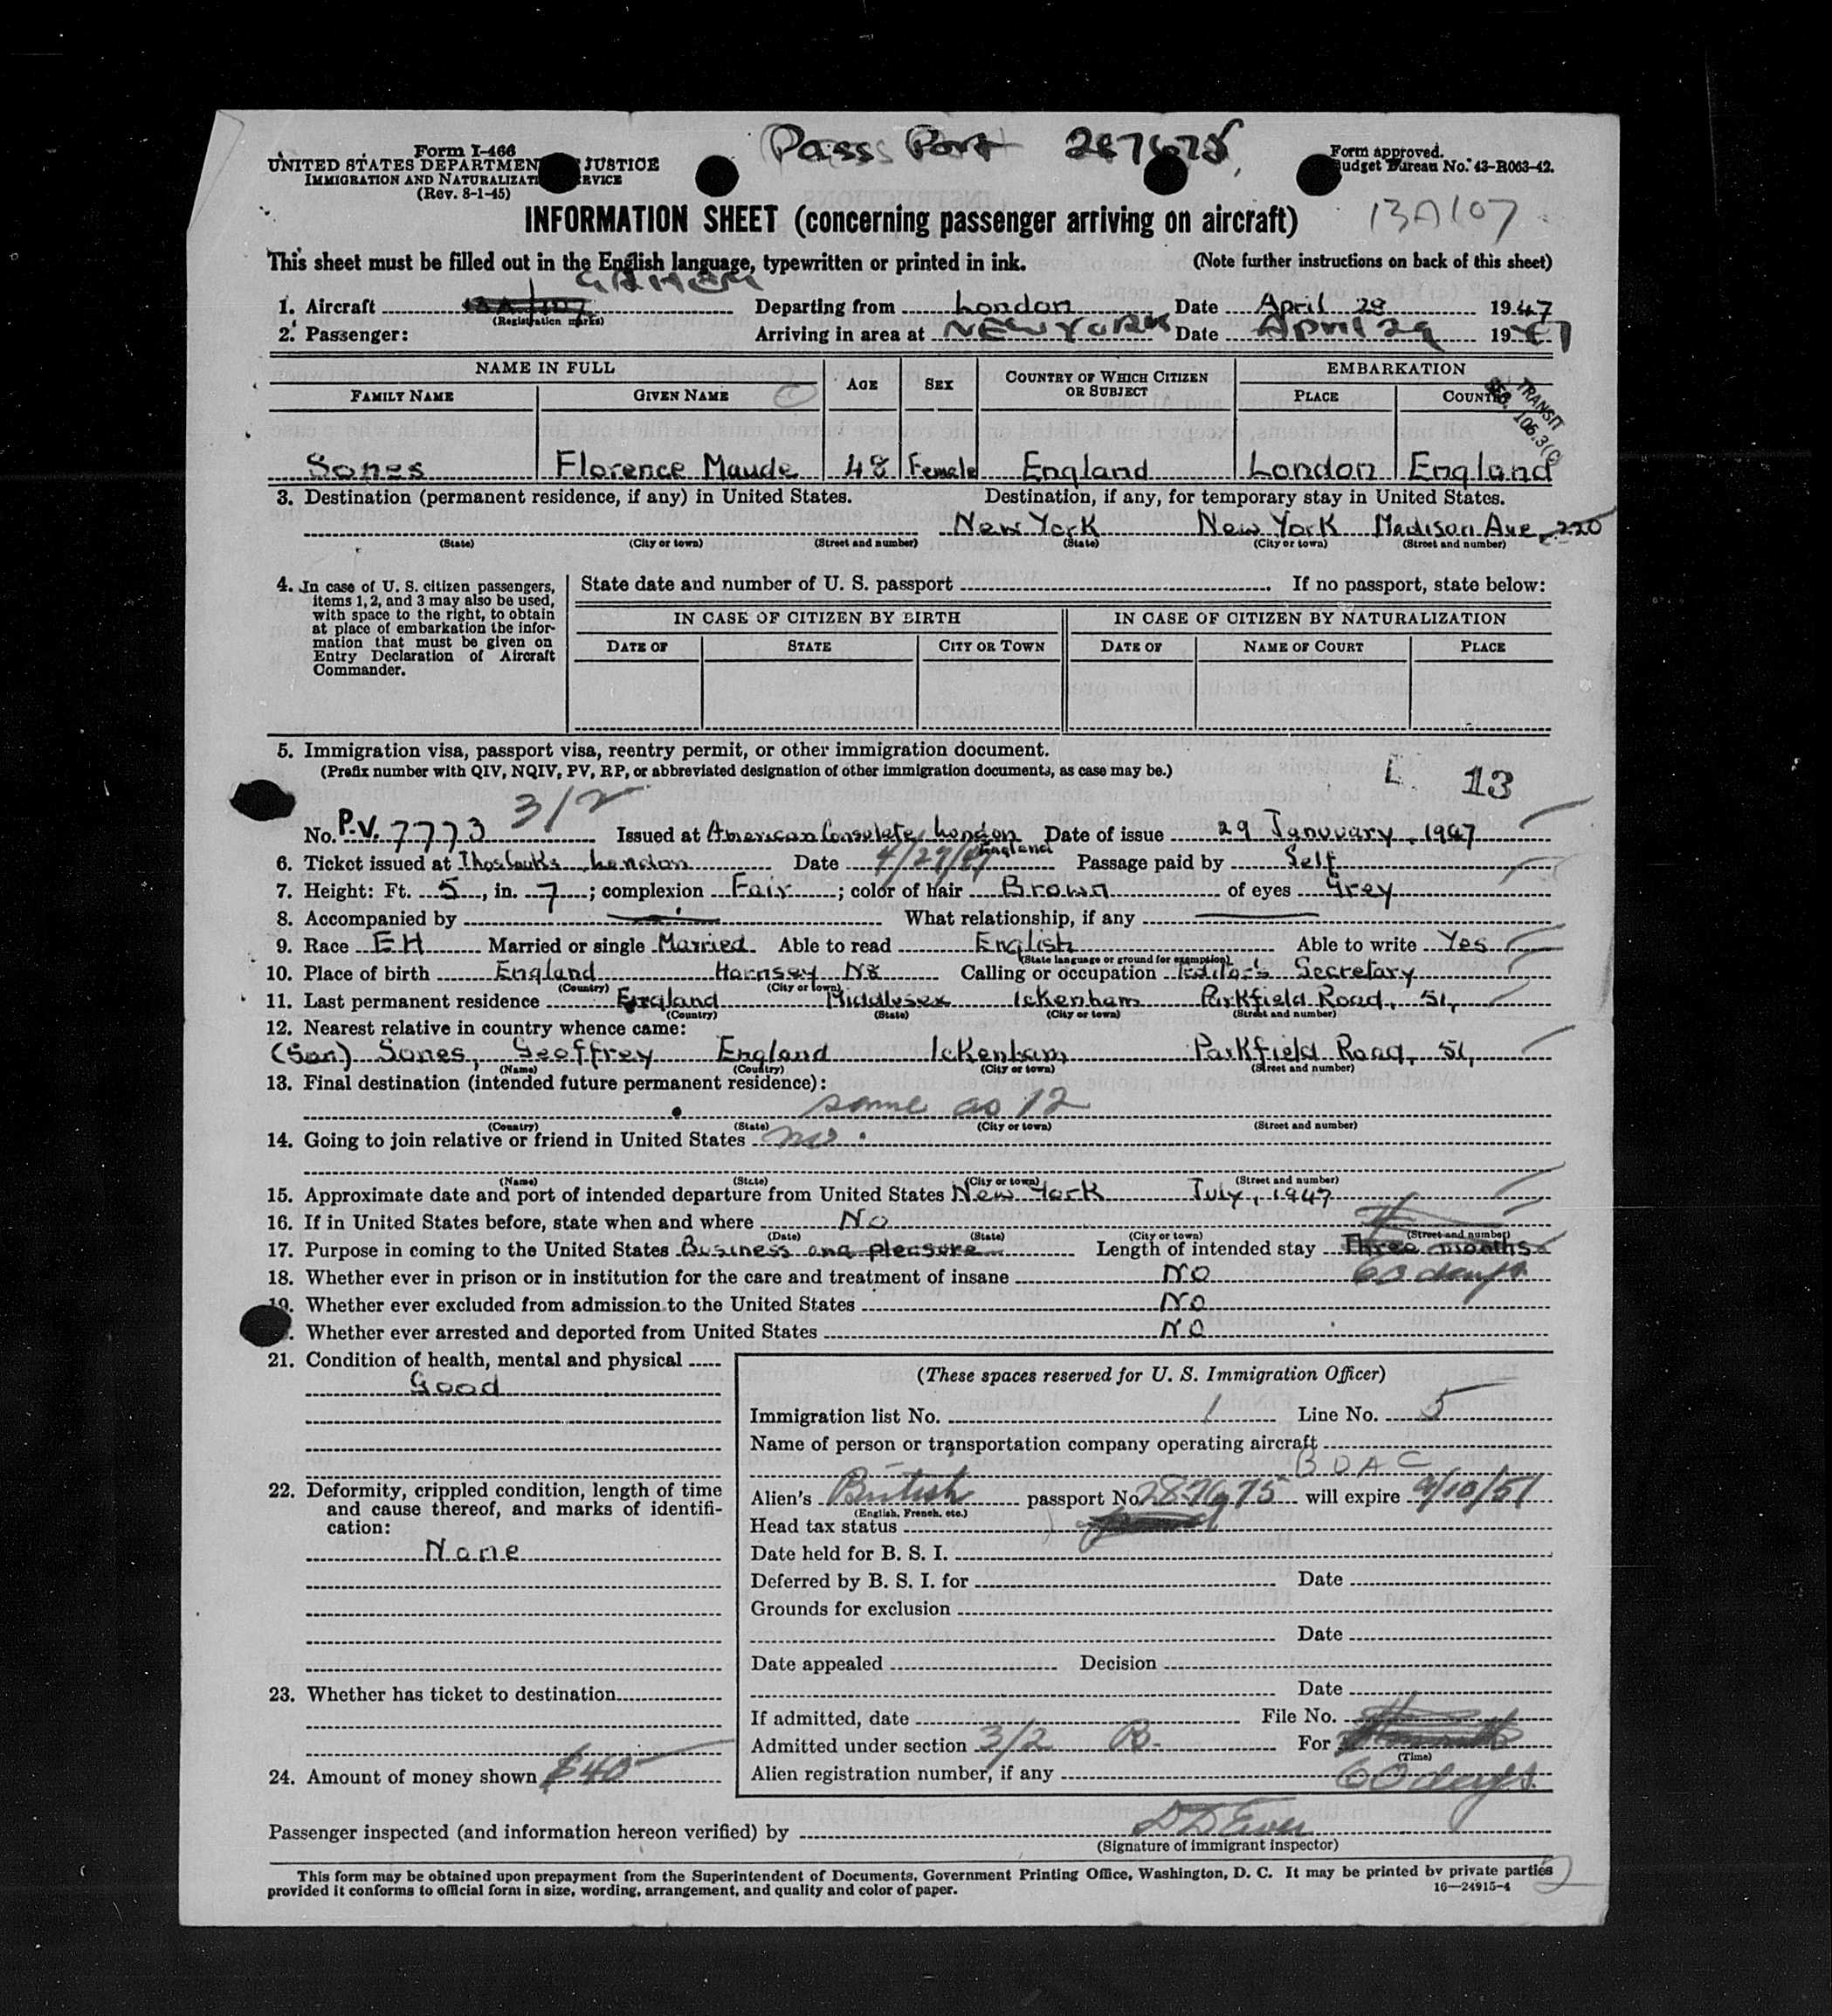 Pass Port
Form I-466
UNITED STATES DEPARTMENT JUSTICE
IMMIGRATION AND NATURALIZATI RVICE
(Rev. 8-1-45)
Form approved.
Budget Bureau No. 43-R063-42.
INFORMATION SHEET (concerning passenger arriving on aircraft)
BA107
This sheet must be filled out in the English language, typewritten or printed in ink. (Note further instructions on back of this sheet)
GAHEM
1. Aircraft Departing from London Date April 28 1947
(Registration marks)
2. Passenger: Arriving in area at NEW YORK Date April 29 1947
NAME IN FULL AGE SEX COUNTRY OF WHICH CITIZEN OR SUBJECT EMBARKATION
FAMILY NAME GIVEN NAME PLACE COUNTRY
TRANSIT
SEC. 106.3(C)
Sones Florence Maude 48 Female England London England
3. Destination (permanent residence, if any) in United States. Destination, if any, for temporary stay in United States.
New York New York Madison Ave, 220
(State) (City or town) (Street and number) (State) (City or town) (Street and number)
4. In case of U. S. citizen passengers, items 1, 2, and 3 may also be used, with space to the right, to obtain at place of embarkation the information that must be given on Entry Declaration of Aircraft Commander.
State date and number of U. S. passport . If no passport, state below:
IN CASE OF CITIZEN BY BIRTH IN CASE OF CITIZEN BY NATURALIZATION
DATE OF STATE CITY OR TOWN DATE OF NAME OF COURT PLACE
5. Immigration visa, passport visa, reentry permit, or other immigration document.
(Prefix number with QIV, NQIV, PV, RP, or abbreviated designation of other immigration documents, as case may be.)
L 13
3/2
No. P.V. 7773 Issued at American Consulate, London England Date of issue 29 Januuary, 1947
6. Ticket issued at Thos Cooks London Date 4/27/47 Passage paid by Self
7. Height: Ft. 5, in. 7; complexion Fair; color of hair Brown of eyes Grey
8. Accompanied by What relationship, if any
9. Race EH Married or single Married Able to read English Able to write Yes
(State language or ground for exemption)
10. Place of birth England Hornsey N8 Calling or occupation Editor's Secretary
(Country) (City or town)
11. Last permanent residence England Middlesex Ickenham Parkfield Road, 51,
(Country) (State) (City or town) (Street and number)
12. Nearest relative in country whence came:
(Son) Sones, Geoffrey England Ickenham Parkfield Road, 51,
(Name) (Country) (City or town) (Street and number)
13. Final destination (intended future permanent residence):
same as 12
(Country) (State) (City or town) (Street and number)
14. Going to join relative or friend in United States no
(Name) (State) (City or town) (Street and number)
15. Approximate date and port of intended departure from United States New York July, 1947
16. If in United States before, state when and where No
(Date) (State) (City or town) (Street and number)
17. Purpose in coming to the United States Business and pleasure Length of intended stay Three months
60 days
18. Whether ever in prison or in institution for the care and treatment of insane NO
19. Whether ever excluded from admission to the United States NO
. Whether ever arrested and deported from United States NO
21. Condition of health, mental and physical
Good
22. Deformity, crippled condition, length of time and cause thereof, and marks of identification:
None
23. Whether has ticket to destination
24. Amount of money shown $40
(These spaces reserved for U. S. Immigration Officer)
Immigration list No. 1 Line No. 5
Name of person or transportation company operating aircraft
BOAC
Alien's British passport No. 287675 will expire 9/10/51
(English, French, etc.)
Head tax status
Date held for B. S. I.
Deferred by B. S. I. for Date
Grounds for exclusion
Date
Date appealed Decision
Date
If admitted, date File No.
Admitted under section 3/2 B. For
(Time)
Alien registration number, if any 60 days
Passenger inspected (and information hereon verified) by
(Signature of immigrant inspector)
This form may be obtained upon prepayment from the Superintendent of Documents, Government Printing Office, Washington, D. C. It may be printed by private parties
provided it conforms to official form in size, wording, arrangement, and quality and color of paper. 16—24915-4
2